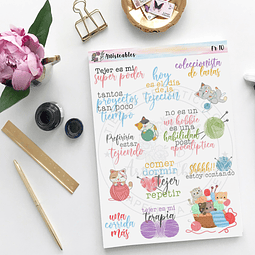 Adhireables
Fr 10
Tejer es mi
super poder
hoy
es el día
de la
tejeción
coleccionista
de lanas
tantos
proyectos
tan poco
tiempo
no es un
hobbie
es una
habilidad
post
apocalíptica
Preferiría
estar
tejiendo
comer
dormir
tejer
repetir
shhhh!
estoy contando
una
corrida
más
tejer es mi
terapia